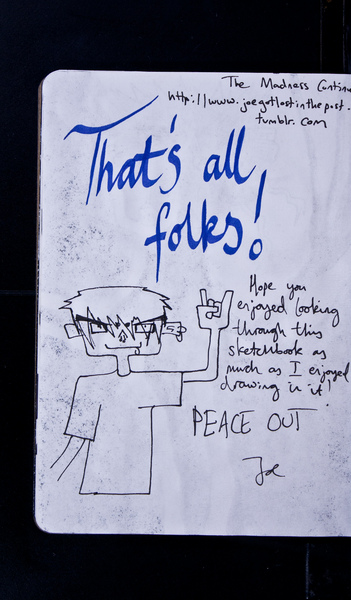 The Madness Continu
http://www.joegotlostinthepost.
tumblr.com
That's all
folks!
Hope you
enjoyed looking
through this
sketchbook as
much as I enjoyed
drawing in it!
PEACE OUT
Joe